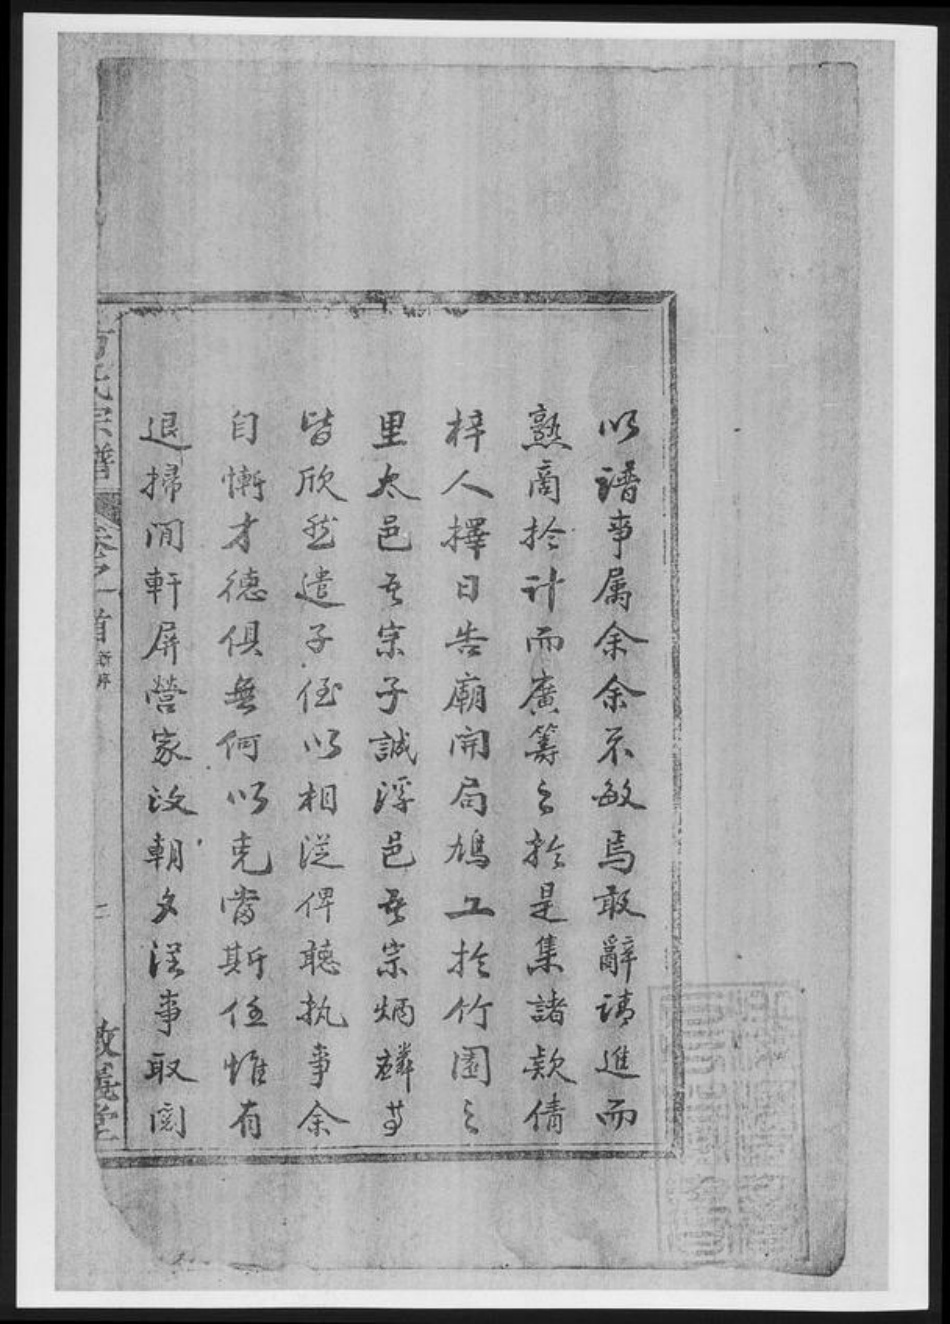 以譜事属余余不敏焉敢辭請進而
熟商扵计而廣籌之扵是集諸欵倩
梓人擇日告廟開局鳩工扵竹園之
里太邑吾宗子誠浮邑吾宗炳麟等
皆欣然遣子侄以相從俾聽执事余
自慚才德俱無何以克當斯任惟有
退掃閒軒屏營家政朝夕從事取閲
氏宗譜
卷之首
新序
二
敦義堂